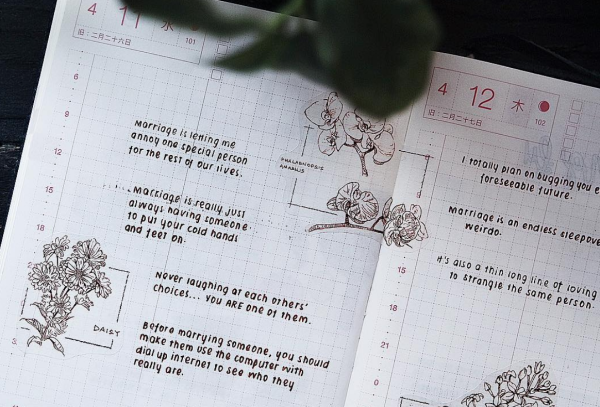 4 11 水
旧：二月二十六日 101
6
9
12
15
18
marriage is letting me
annoy one special person
for the rest of our lives.
PHALAENOPSIS
AMABILIS
Marriage is really just
always having someone
to put your cold hands
and feet on.
never laughing at each others'
choices... you are one of them.
DAISY
Before marrying someone, you should
make them use the computer with
dial up internet to see who they
really are.
4 12 木
旧：二月二十七日 102
15
18
21
0
I totally plan on bugging you
foreseeable future.
Marriage is an endless
weirdo.
It's also a thin long line of loving
to strangle the same person.